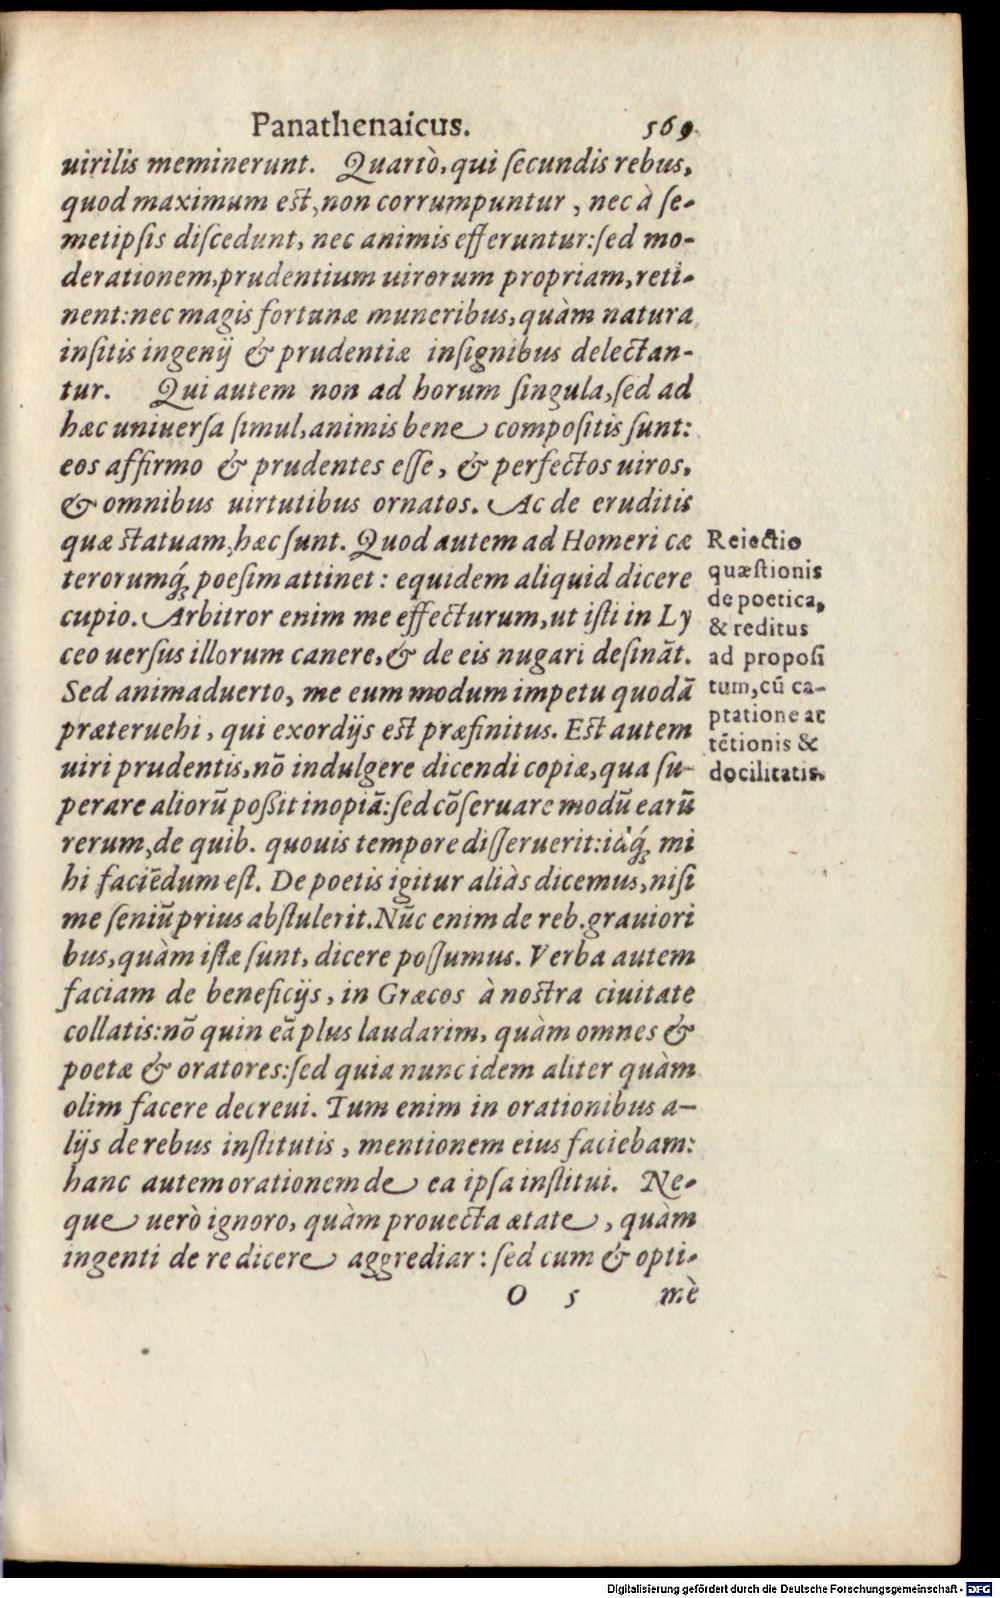 Panathenaicus. 569
uirilis meminerunt. Quartò, qui ſecundis rebus,
quod maximum eſt, non corrumpuntur, nec à ſe-
metipſis diſcedunt, nec animis efferuntur: ſed mo-
derationem, prudentium uirorum propriam, reti-
nent: nec magis fortunæ muneribus, quàm natura
inſitis ingenij & prudentiæ inſignibus delectan-
tur. Qui autem non ad horum ſingula, ſed ad
hæc uniuerſa ſimul, animis bene compoſitis ſunt:
eos affirmo & prudentes eſſe, & perfectos uiros,
& omnibus uirtutibus ornatos. Ac de eruditis
quæ ſtatuam, hæc ſunt. Quod autem ad Homeri cæ
terorumq́ꝫ poeſim attinet: equidem aliquid dicere
cupio. Arbitror enim me effecturum, ut iſti in Ly
ceo uerſus illorum canere, & de eis nugari deſināt.
Sed animaduerto, me eum modum impetu quodā
præteruehi, qui exordijs eſt præfinitus. Eſt autem
uiri prudentis, nō indulgere dicendi copiæ, qua ſu-
perare aliorū poßit inopiā: ſed cōſeruare modū earū
rerum, de quib. quouis tempore diſſeruerit: idq́ꝫ mi
hi faciēdum eſt. De poetis igitur aliàs dicemus, niſi
me ſeniū prius abſtulerit. Nūc enim de reb. grauiori
bus, quàm iſtæ ſunt, dicere poſſumus. Verba autem
faciam de beneficijs, in Græcos à noſtra ciuitate
collatis: nō quin eā plus laudarim, quàm omnes &
poetæ & oratores: ſed quia nunc idem aliter quàm
olim facere decreui. Tum enim in orationibus a-
lijs de rebus inſtitutis, mentionem eius faciebam:
hanc autem orationem de ea ipſa inſtitui. Ne-
que uerò ignoro, quàm prouecta ætate, quàm
ingenti de re dicere aggrediar: ſed cum & opti-
O 5 mè
Reiectio
quæſtionis
de poetica,
& reditus
ad propoſi
tum, cū ca-
ptatione at
tētionis &
docilitatis.
Digitalisierung gefördert durch die Deutsche Forschungsgemeinschaft - DFG